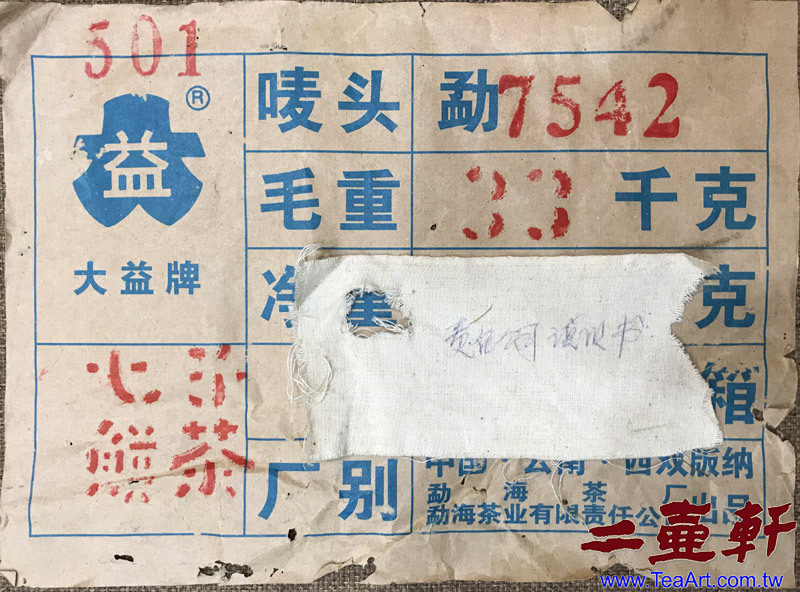 501
益®
大益牌
唛头 勐7542
毛重 33 千克
净重 克
箱
七子
饼茶
厂别
中国·云南·西双版纳
勐海茶厂出品
勐海茶业有限责任公
二壶轩
www.TeaArt.com.tw